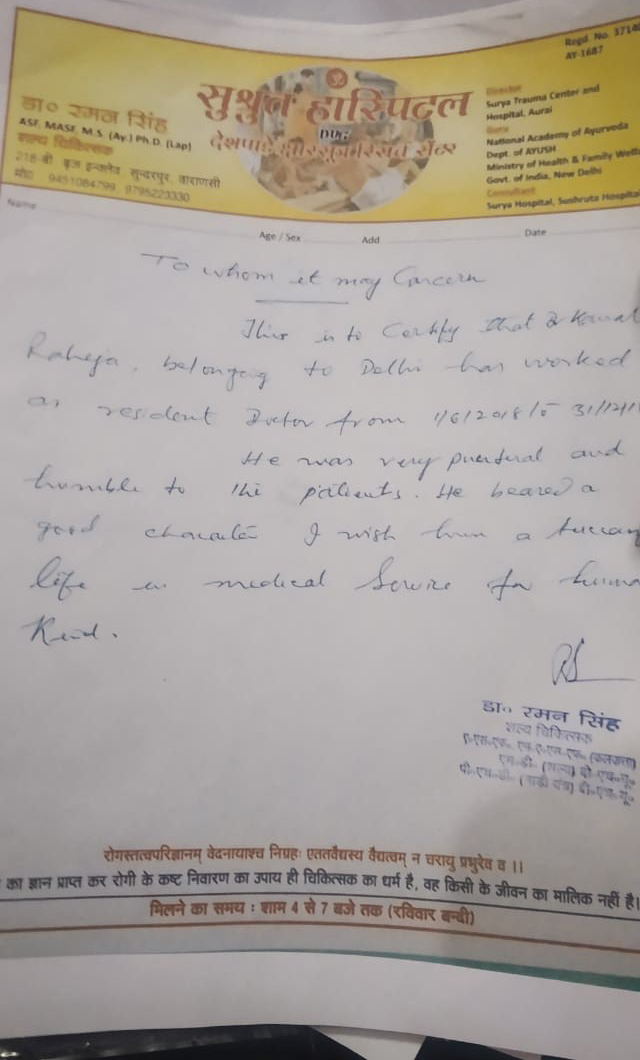 Regd. No. 3714
AY-1687
डा० रमन सिंह
ASF, MASF, M.S. (Ay.) Ph.D. (Lap)
शल्य चिकित्सक
218-बी बृज इन्क्लेव सुन्दरपुर, वाराणसी
मो० 9451084799, 9795223330
सुश्रुत हास्पिटल
एण्ड
देशपाण्डे क्षारसूत्र रिसर्च सेंटर
Director
Surya Trauma Center and
Hospital, Aurai
Guru
National Academy of Ayurveda
Dept. of AYUSH
Ministry of Health & Family Welf
Govt. of India, New Delhi
Consultant
Surya Hospital, Sushruta Hospital
Name
Age / Sex Add Date
To whom it may Concern
This is to Certify that Dr Kamal
Raheja, belonging to Delhi has worked
as resident Doctor from 1/6/2018 to 31/12/1
He was very punctual and
humble to the patients. He beared a
good character I wish him a
life in medical Service for huma
Kind.
RS
डा० रमन सिंह
शल्य चिकित्सक
रोगस्तत्वपरिज्ञानम् वेदनायाश्च निग्रहः एततवैद्यस्य वैद्यत्वम् न चरायु प्रभुरेव व ।।
का ज्ञान प्राप्त कर रोगी के कष्ट निवारण का उपाय ही चिकित्सक का धर्म है, वह किसी के जीवन का मालिक नहीं है।
मिलने का समय : शाम 4 से 7 बजे तक (रविवार बन्दी)